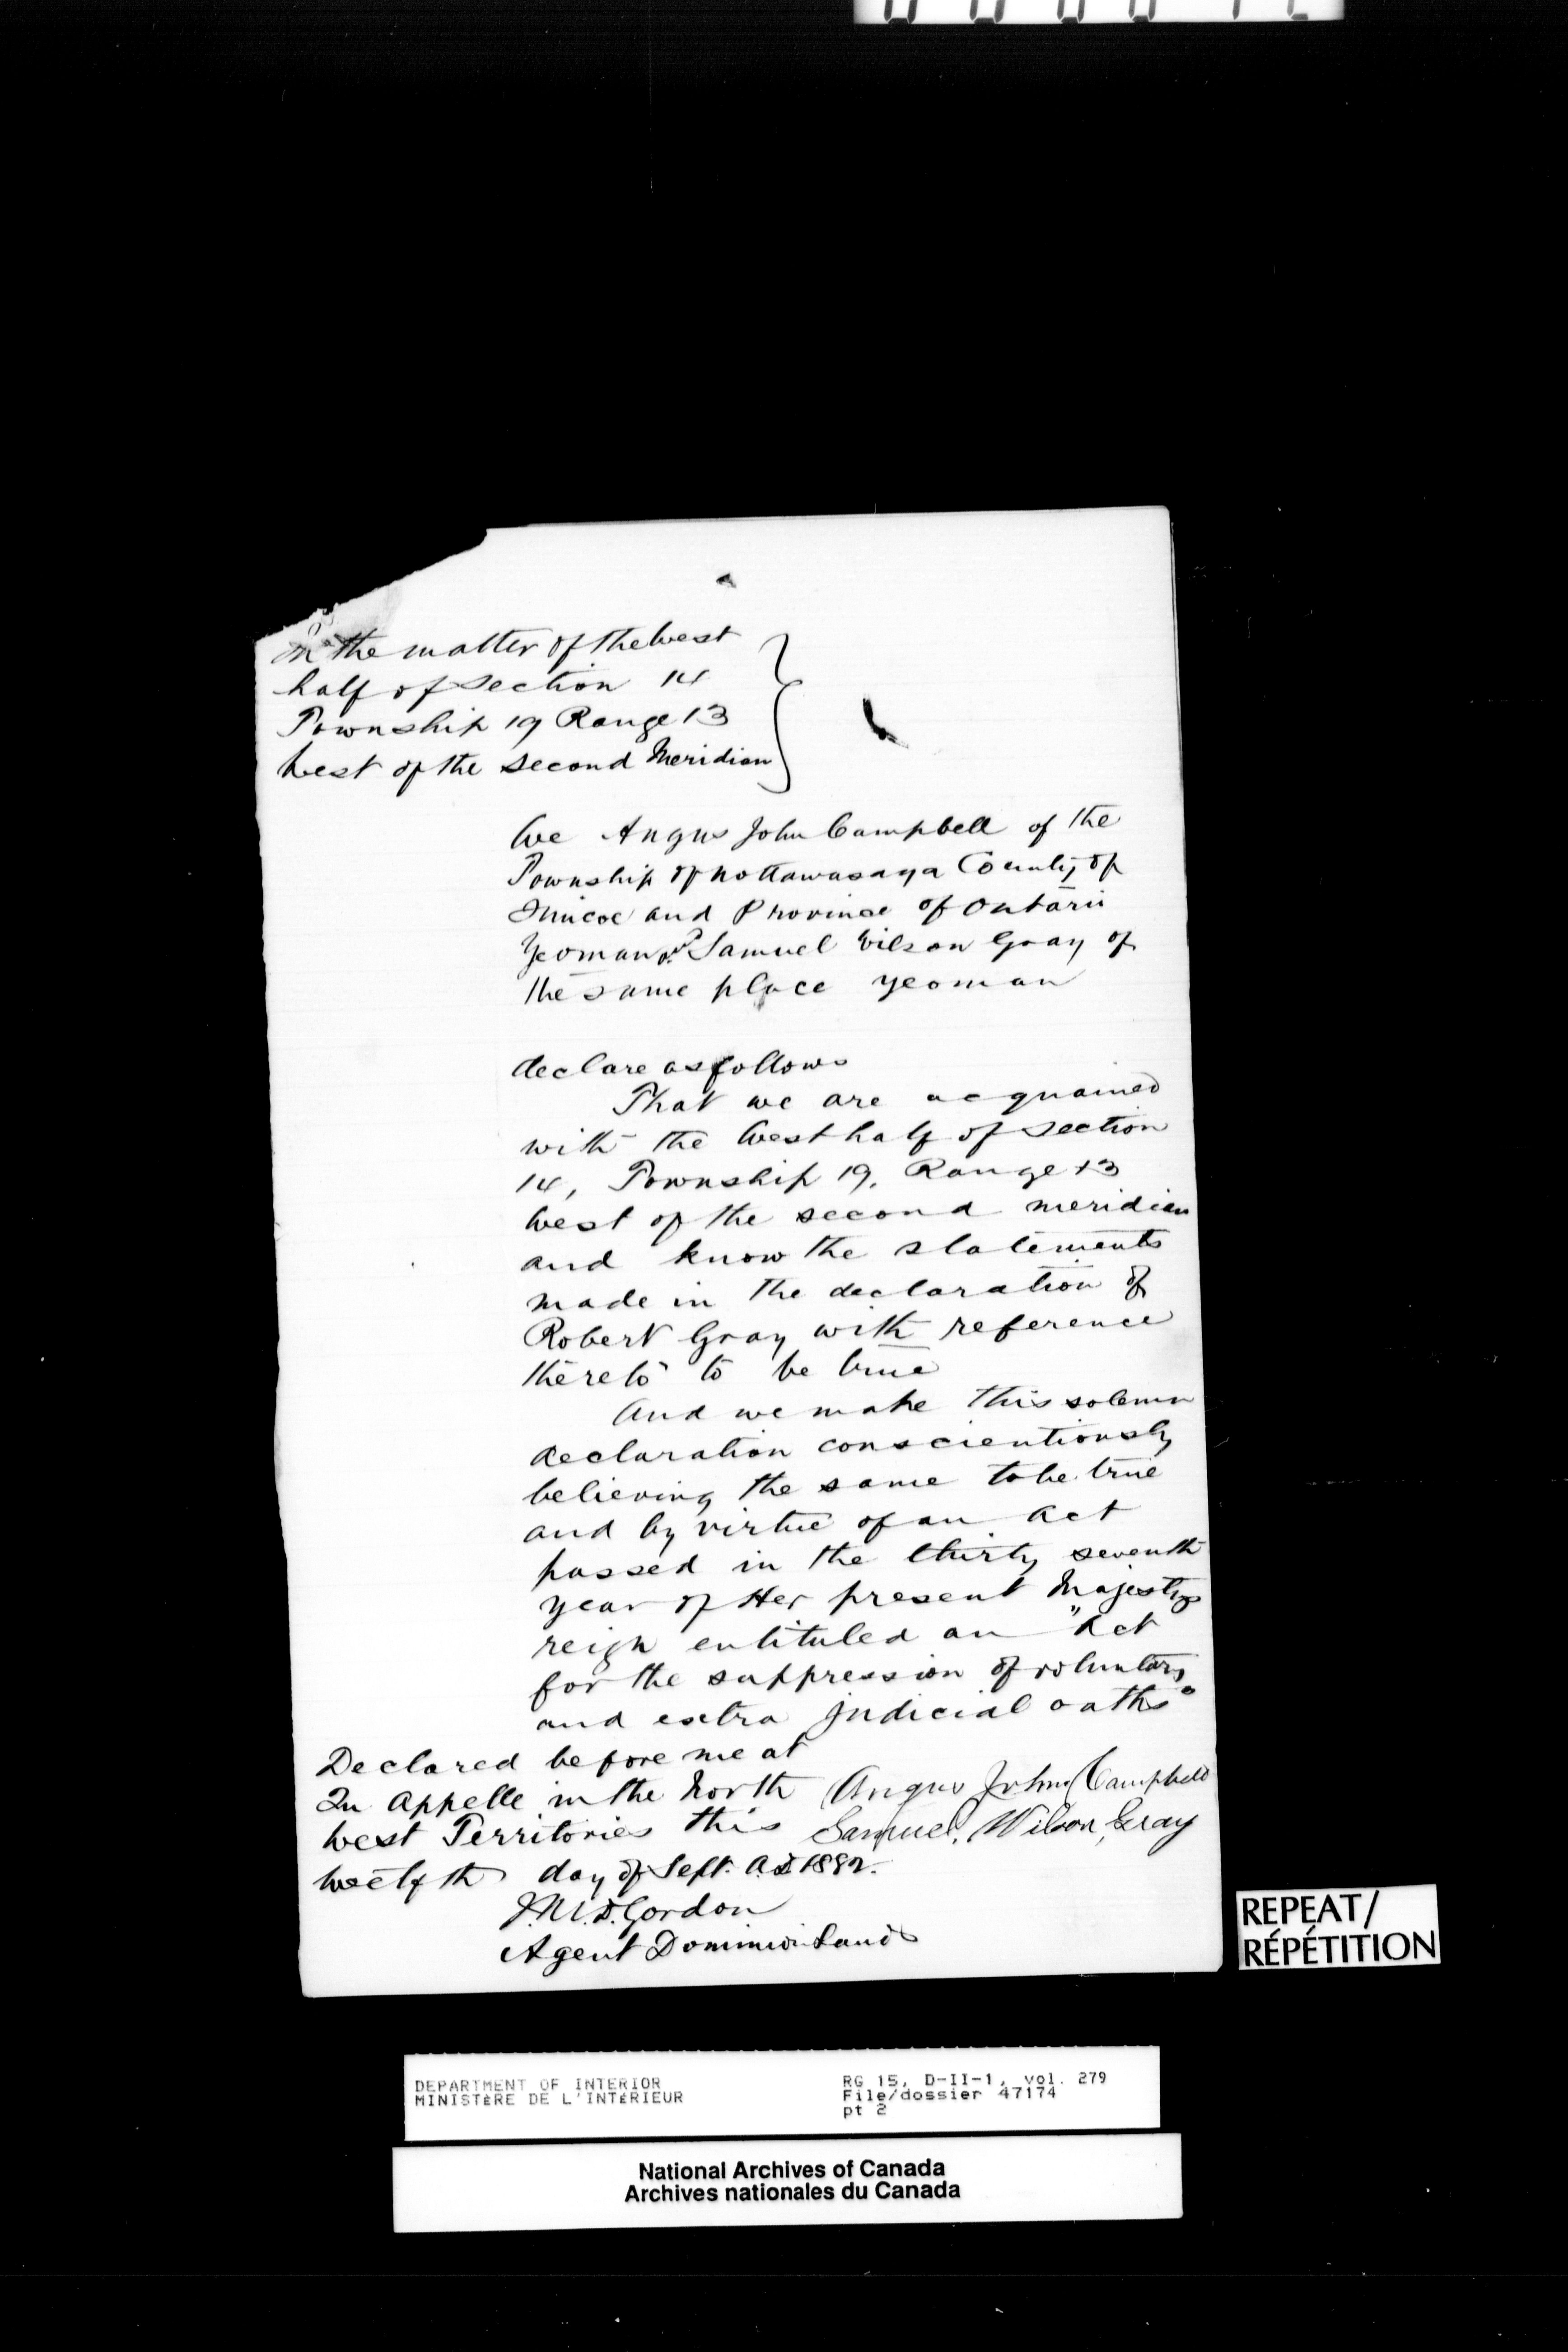 In the matter of the West
half of Section 14
Township 19 Range 13
West of the Second Meridian
We Angus John Campbell of the
Township of Nottawasaga County of
Simcoe and Province of Ontario
Yeoman & Samuel Wilson Gray of
the same place yeoman
declare as follows
That we are acquained
with the West half of Section
14, Township 19, Range 13
West of the second meridian
and know the statements
made in the declaration of
Robert Gray with reference
thereto to be true
And we make this solemn
declaration conscientiously
believing the same to be true
and by virtue of an Act
passed in the thirty seventh
year of Her present Majestys
reign entituled an "Act
for the suppression of voluntary
and extra judicial oaths"
Declared before me at
Qu Appelle in the North
West Territories this
twelfth day of Sept. A.D 1882.
Angus John Campbell
Samuel, Wilson, Gray
Gordon
Agent Dominion Lands
REPEAT/
RÉPÉTITION
DEPARTMENT OF INTERIOR
MINISTÈRE DE L'INTÉRIEUR
RG 15, D-II-1, vol. 279
File/dossier 47174
pt 2
National Archives of Canada
Archives nationales du Canada